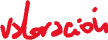 valoración